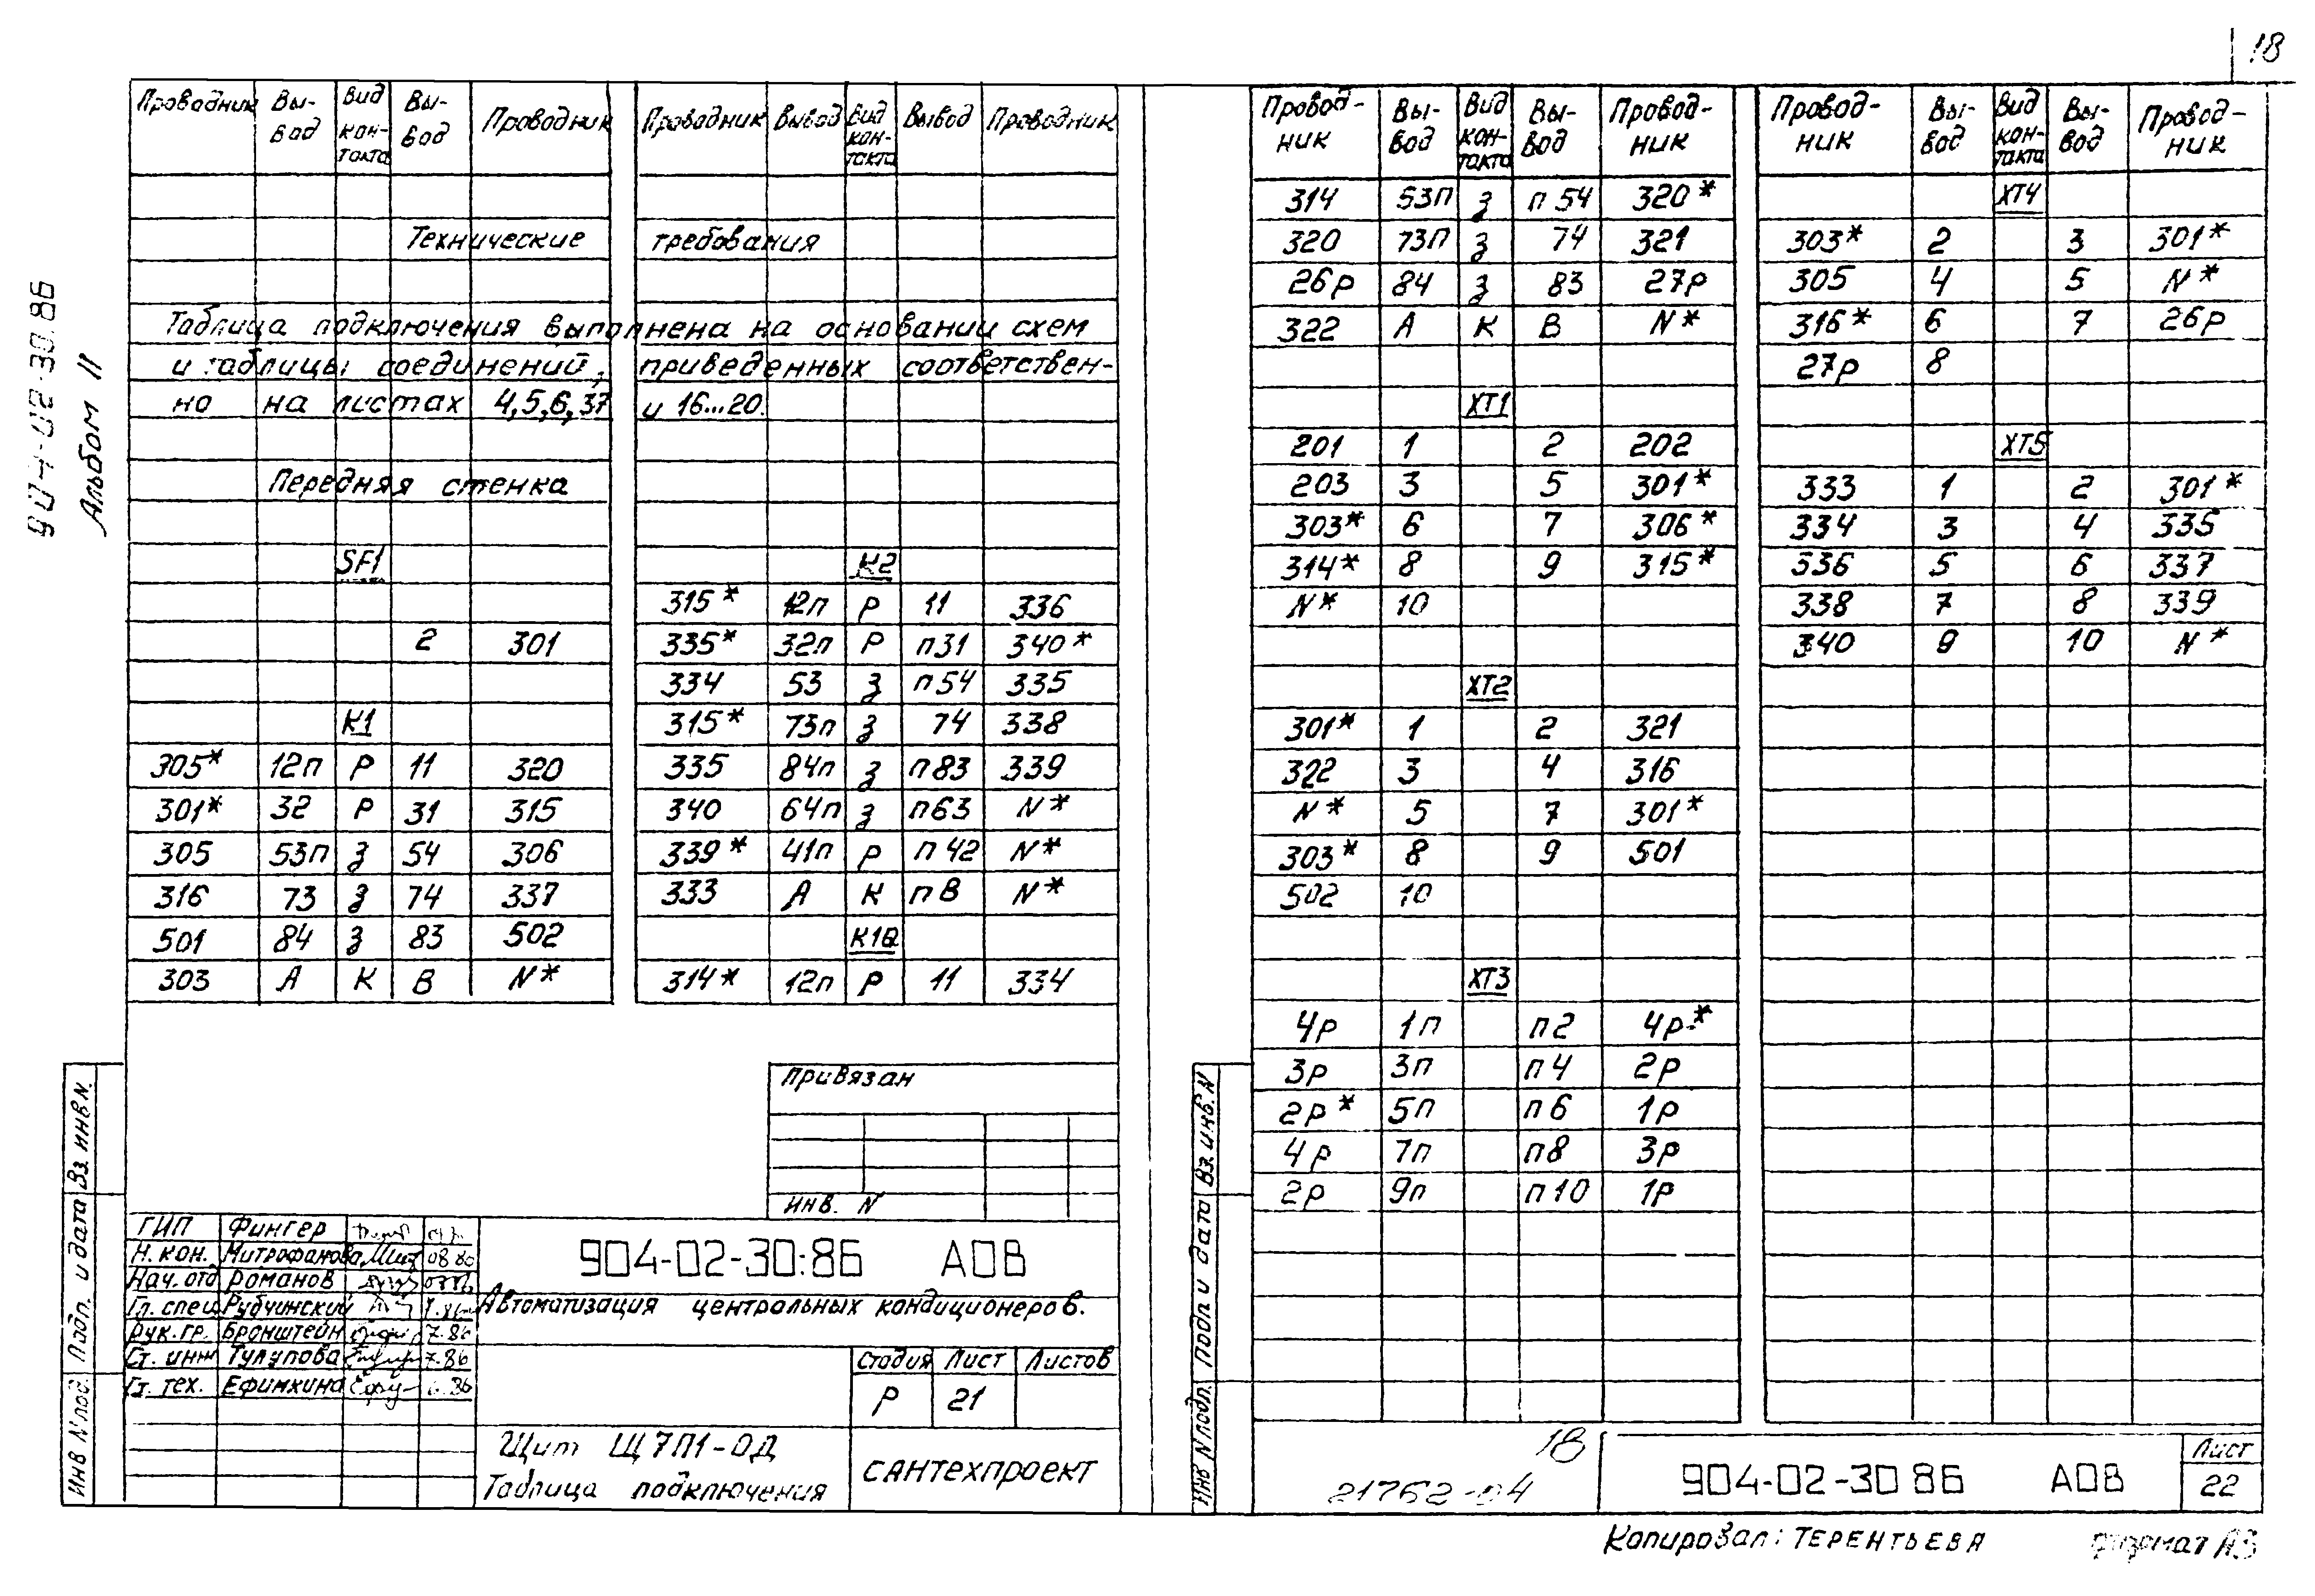 18
904-02-30.86
Альбом II
Проводник Вы-вод Вид кон-такта Вы-вод Проводник
Проводник Вывод Вид кон-такта Вывод Проводник
Технические требования
Таблица подключения выполнена на основании схем
и таблицы соединений, приведенных соответствен-
но на листах 4,5,6,37 и 16...20.
Передняя стенка
SF1
2 301
К1
305* 12п Р 11 320
301* 32 Р 31 315
305 53п З 54 306
316 73 З 74 337
501 84 З 83 502
303 А К В N*
К2
315* 12п Р 11 336
335* 32п Р п31 340*
334 53 З п54 335
315* 73п З 74 338
335 84п З п83 339
340 64п З п63 N*
339* 41п Р п42 N*
333 А К пВ N*
314* 12п Р 11 334
Привязан
Инв. N
ГИП Фингер
Н. кон. Митрофанова 08.86
Нач. отд Романов
Гл. спец Рубчинский
Рук. гр. Бронштейн 7.86
Ст. инж Тулупова 7.86
Ст. тех. Ефимкина
904-02-30.86 АОВ
Автоматизация центральных кондиционеров.
Стадия Лист Листов
Р 21
Щит Щ7П1-ОД
Таблица подключения
САНТЕХПРОЕКТ
Взинв N.
Подп. и дата
Инв N под.
Провод-ник Вы-вод Вид кон-такта Вы-вод Провод-ник
314 53п З п54 320*
320 73п З 74 321
26р 84 З 83 27р
322 А К В N*
ХТ1
201 1 2 202
203 3 5 301*
303* 6 7 306*
314* 8 9 315*
N* 10
ХТ2
301* 1 2 321
322 3 4 316
N* 5 7 301*
303* 8 9 501
502 10
ХТ3
4р 1п п2 4р*
3р 3п п4 2р
2р* 5п п6 1р
4р 7п п8 3р
2р 9п п10 1р
Провод-ник Вы-вод Вид кон-такта Вы-вод Провод-ник
ХТ4
303* 2 3 301*
305 4 5 N*
316* 6 7 26р
27р 8
ХТ5
333 1 2 301*
334 3 4 335
336 5 6 337
338 7 8 339
340 9 10 N*
Вз. инв. N
Подп и дата
Инв N подп.
18
21762-04
904-02-30 86 АОВ
Лист
22
Копировал: ТЕРЕНТЬЕВА
Формат А3